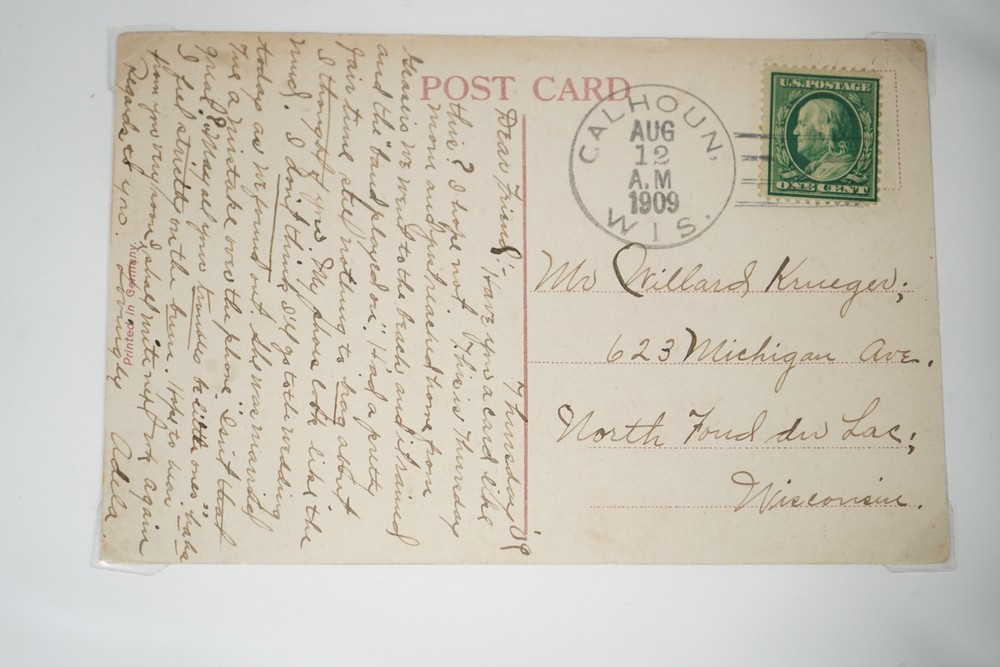 POST CARD
U.S. POSTAGE
ONE CENT
CALHOUN,
AUG
12
A.M
1909
WIS.
Mr Willard Krueger,
623 Michigan Ave.
North Fond du Lac,
Wisconsin.
Thursday '09
Dear Friend; Have you a card like
this? I hope not. This is Thursday
morn and just reached home from
we went to the beach and it rained
and the "band played on". Had a pretty
fair time still nothing to brag about
I thought of you. My phone
much. I don't think I'll go to the wedding
today as we found out she was married
a mistake over the phone. Isn't that
great? May all your troubles be little ones" haha
I ful strictly on the bum. Hope to hear
from you very soon, shall write next wk again
Regards to you. Lovingly Adela
Printed in Germany.